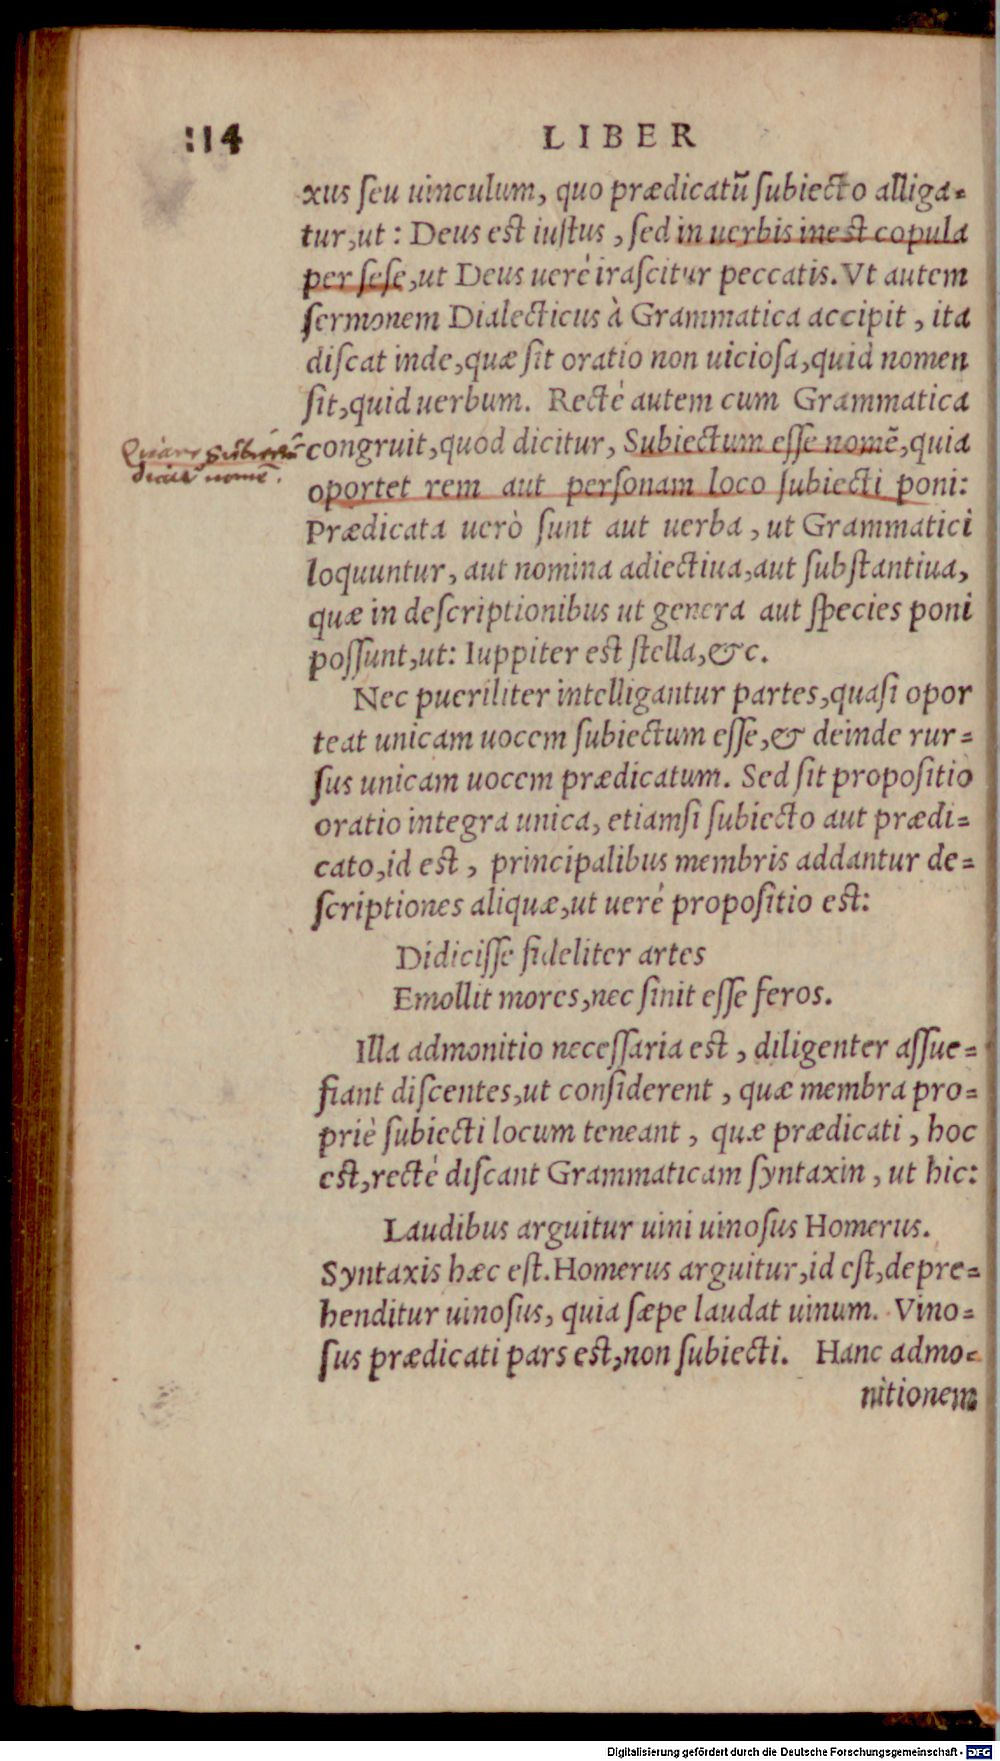 114
LIBER
xus ſeu uinculum, quo prædicatū ſubiecto alliga-
tur, ut: Deus est iuſtus, ſed in uerbis inest copula
per ſeſe, ut Deus uerè iraſcitur peccatis. Vt autem
ſermonem Dialecticus à Grammatica accipit, ita
diſcat inde, quæ ſit oratio non uicioſa, quid nomen
ſit, quid uerbum. Rectè autem cum Grammatica
congruit, quod dicitur, Subiectum eſſe nomē, quia
oportet rem aut perſonam loco ſubiecti poni:
Quare subiectū
dicitur nomē.
Prædicata uerò ſunt aut uerba, ut Grammatici
loquuntur, aut nomina adiectiua, aut ſubſtantiua,
quæ in deſcriptionibus ut genera aut ſpecies poni
poſſunt, ut: Iuppiter est ſtella, &c.
Nec pueriliter intelligantur partes, quaſi opor
teat unicam uocem ſubiectum eſſe, & deinde rur-
ſus unicam uocem prædicatum. Sed ſit propoſitio
oratio integra unica, etiamſi ſubiecto aut prædi-
cato, id est, principalibus membris addantur de-
ſcriptiones aliquæ, ut uerè propoſitio est:
Didiciſſe fideliter artes
Emollit mores, nec ſinit eſſe feros.
Illa admonitio neceſſaria est, diligenter aſſue-
fiant diſcentes, ut conſiderent, quæ membra pro-
priè ſubiecti locum teneant, quæ prædicati, hoc
est, rectè diſcant Grammaticam ſyntaxin, ut hic:
Laudibus arguitur uini uinoſus Homerus.
Syntaxis hæc eſt. Homerus arguitur, id eſt, depre-
henditur uinoſus, quia ſæpe laudat uinum. Vino-
ſus prædicati pars est, non ſubiecti. Hanc admo-
nitionem
Digitalisierung gefördert durch die Deutsche Forschungsgemeinschaft - DFG